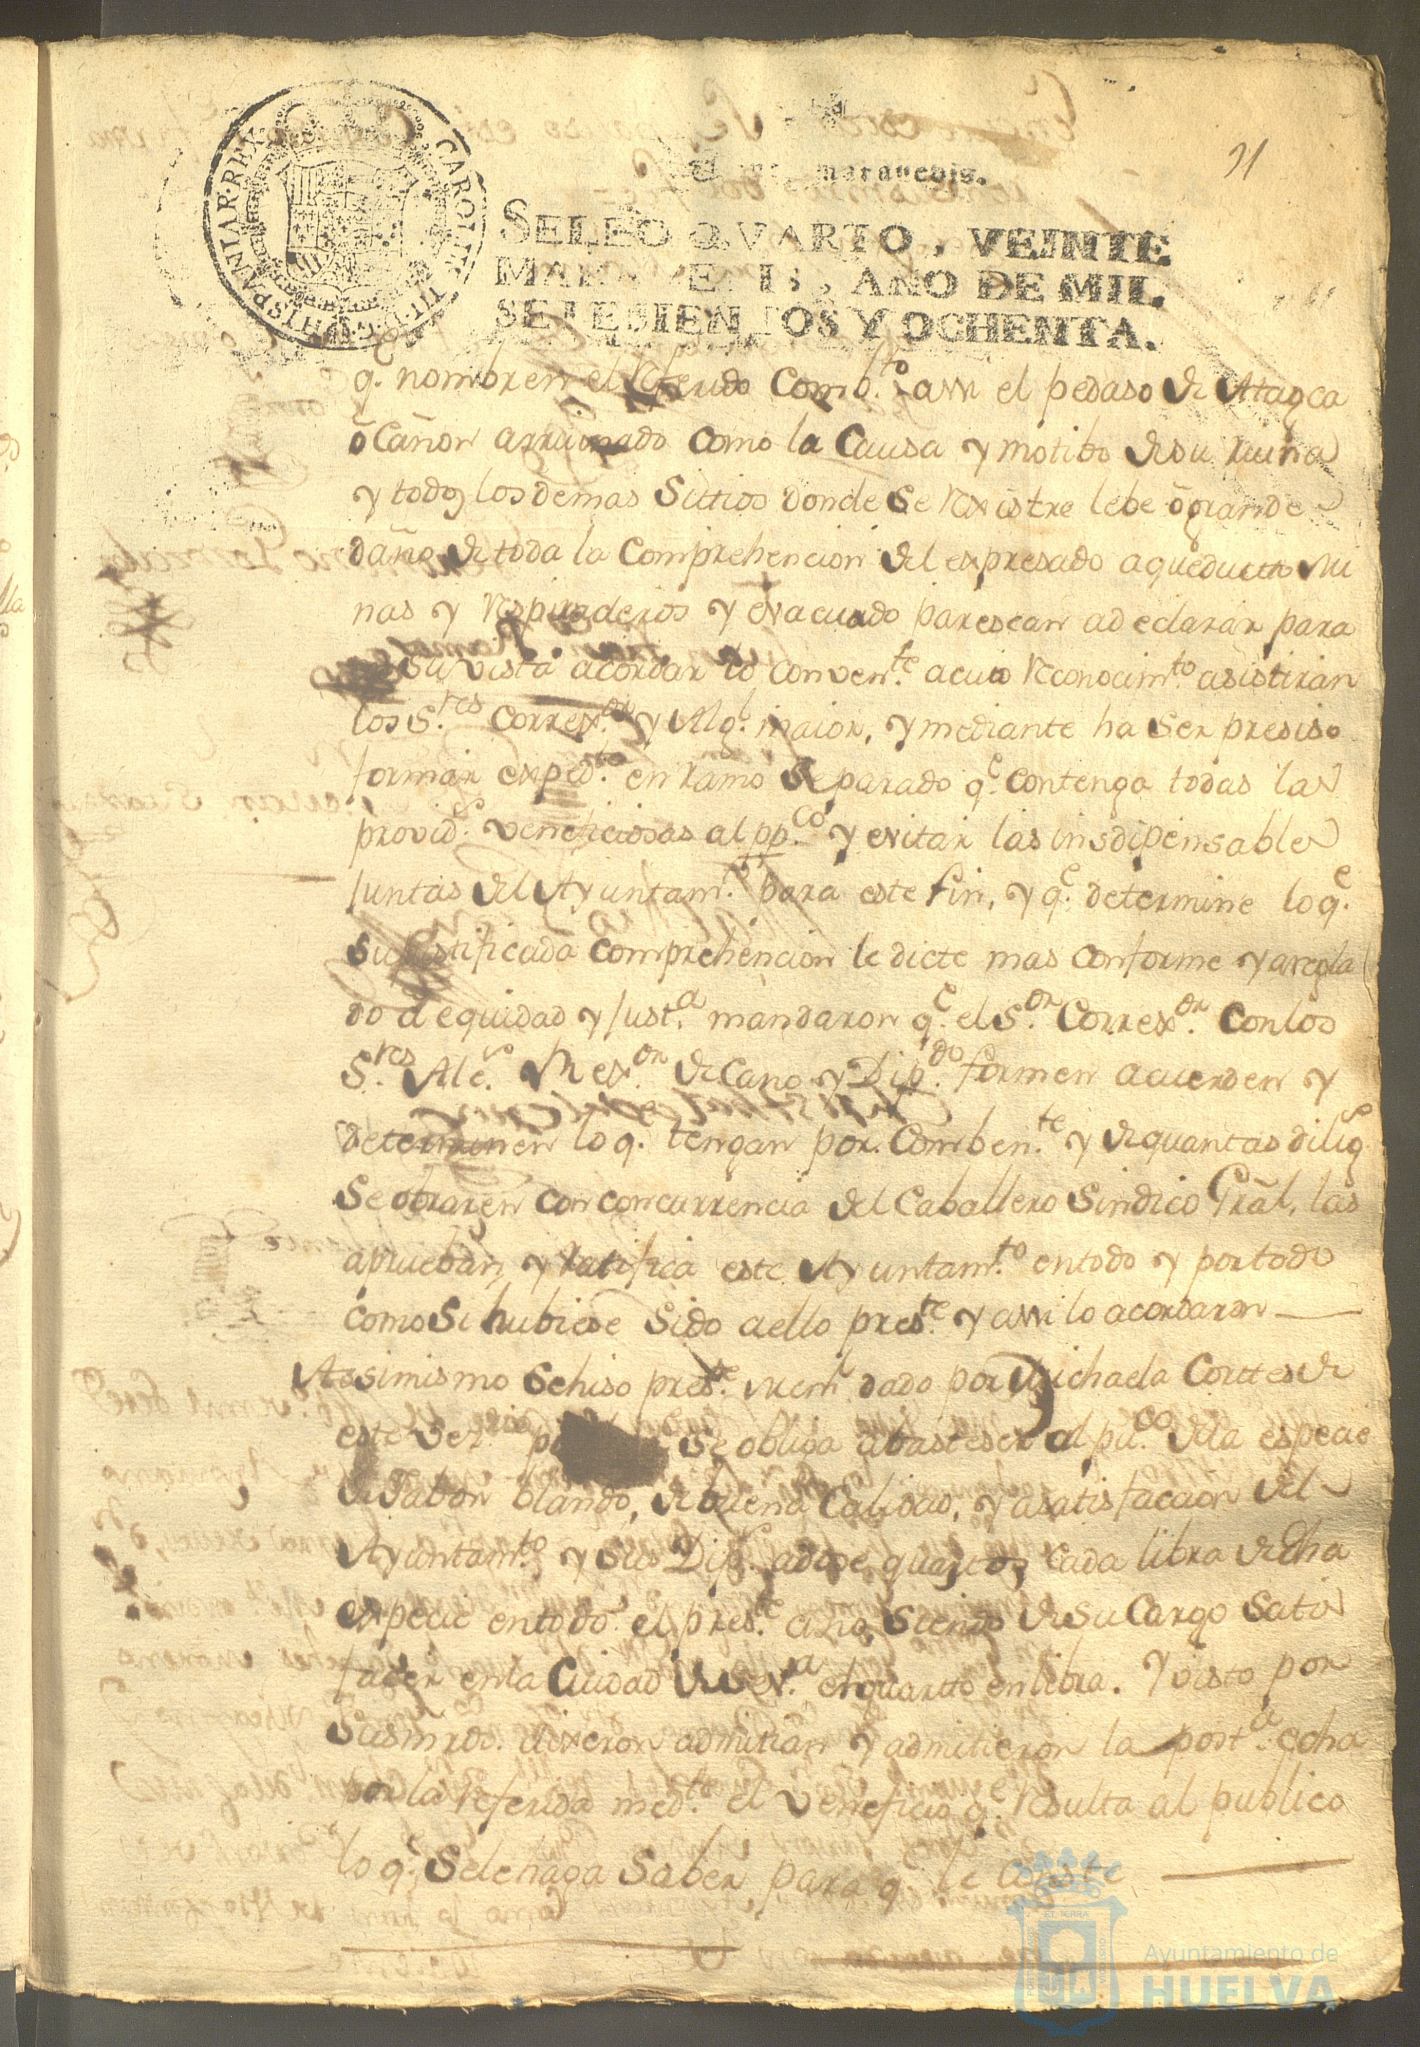 21
maravedis.
SELLO QVARTO, VEINTE
MARAVEDIS, AÑO DE MIL
SETECIENTOS Y OCHENTA.
CAROLVS III D. G. HISPANIAR. REX
q.e nombren el referido Comb.to assi el pedaso de Atagea
o Cañon arruinado como la Causa y motibo de su ruina
y todos los demas Sittios donde se rexistre lebe o grande
daño de toda la Comprehencion del expresado aqueducto Mi
nas y respiraderos y evacuado parescan a declarar para
su vista acordar lo conven.te a cuio reconocim.to asistiran
los S.res Correx.or y Alg.l maior, y mediante ha ser presiso
formar exped.te en ramo separado q.e contenga todas las
provid.s veneficiosas al pp.co y evitar las insdipensables
Juntas del Ayuntam.to para este fin, y q.e determine lo q.e
su justificada comprehencion le dicte mas conforme y aregla
do a equidad y Just.a mandaron q.e el S.or Correx.or con los
S.res Alc.e Rex.or Decano y Dip.do formen acuerden y
determinen lo q.e tengan por comben.te y de quantas dilig.s
se obraren con concurrencia del Caballero Sindico Gral, las
aprueban, y ratifica este Ayuntam.to en todo y por todo
como si hubiese sido a ello pres.te y assi lo acordaron
Assimismo se hiso pres.te mem.l dado por Michaela Corttes de
este Vez.rio se obliga abasteser al pu.co de la especie
de Jabon blando, de buena Calidad, y a satisfacion del
Ayuntam.to y sus Dip.s a dose quartos cada libra de dha
expecie en todo el pres.te año, siendo de su Cargo satis
facer en la Ciudad de Sev.a el quarto en libra. Y visto por
sus mrds. dixeron admitian y admitieron la post.a echa
por la referida med.te el veneficio q.e resulta al publico
lo q.e se le haga saber para q.e le conste
Ayuntamiento de
HUELVA